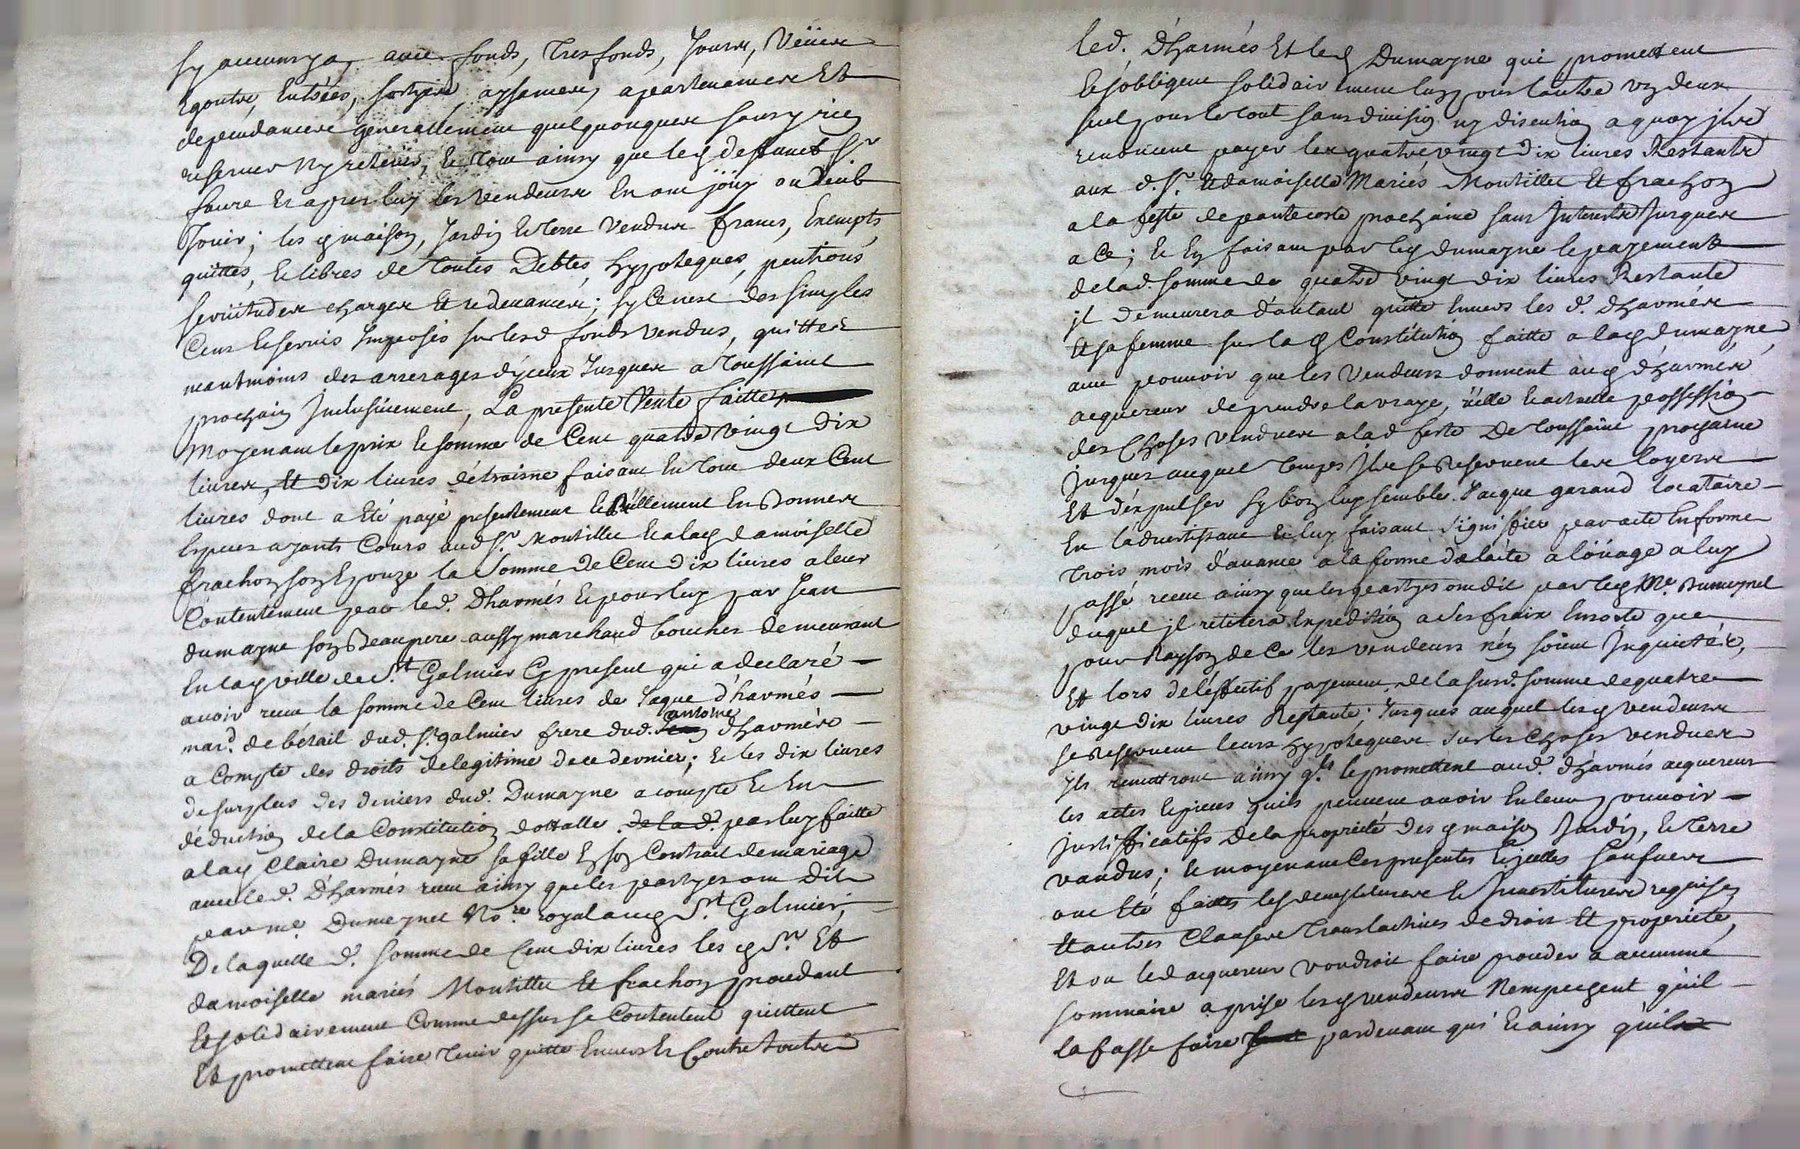 sy aucuns y a, avec fonds, tresfonds, Jours, Veües
Egoutz, Entrées, sortyes aysances, apartenances Et
dependances generallement quelquonques sans y rien
reserver Ny retenir, Le tout ainsy que led deffunct Sr
faure Et apres luy les vendeurs En ont joüy ou deub
Jouir; les d maison, Jardin Et terre vendus francs, Exempts,
quittes, et libres de toutes Debtes, hypoteques, pentions
servitudes charges Et redevances; sy Ce n'est des simples
Cens Et servis Imposés sur lesd fonds vendus, quittes
neantmoins des arrerages d'yceux Jusques a Toussaint
prochain Inclusivement, La presente Vente faitte
Moyenant le prix Et somme de Cent quatre vingt dix
livres, Et dix livres d'étraine faisant En tout deux Cent
livres dont a été payé presentement Et réellement En Bonnes
Especes ayants Cours aud Sr Montillet Et a lad damoiselle
frachon son Epouze la Somme de Cent dix livres a leur
Contentement par led. Dharmés Et pour luy par Jean
dumayne son Beaupere aussy marchand boucher demeurant
En lad ville de St Galmier Cy present qui a declaré
avoir receu la somme de Cent livres de Jaque d'harmés
mard. de bétail dud. St galmier frere dud. antoine dharmés
a Compte des droits de legitime de ce dernier; Et les dix livres
de surplus des deniers dud. Dumayne a compte Et En
déduction de la Constitution dottalle de lad. par luy faitte
a lad Claire Dumayne sa fille En son Contrait de mariage
avec led. D'harmés receu ainsy que les partyes ont Dit
par me Dumeynet Nore royal aud St Galmier,
De laquelle d. somme de Cent dix livres les d Sr Et
damoiselle mariés Montillet Et frachon procedant
Et solidairement Comme dessus se Contentent quittent
Et promettent faire tenir quitte Envers Et Contre toutes
led. D'harmés Et led Dumayne qui promettent
Et s'obligent solidairement l'un pour l'autre un deux
seul pour le tout sans division ny discution a quoy ils
renoncent payer les quatre vingt dix livres Restants
aux d. Sr Et damoiselle Mariés Montillet Et frachon
a la feste de pantecoste prochaine sans Interests Jusques
a Ce; Et En faisant par led dumayne le payement
de lad. somme de quatre vingt dix livres Restants
il demeurera d'autant quitte Envers les d. dharmés
Et sa femme sur la d Constitution faitte a lad dumayne,
avec pouvoir que les Vendeurs donnent aud d'harmés
acquereur de prendre la vraye, réelle Et actuelle possession
des Choses vendues a lad feste De Toussaint prochaine
Jusques auquel temps Ils se Reservent les loyers
Et d'expulser sy bon luy semble Jacque garand locataire
En l'advertissant Et luy faisant signiffier par acte En forme
trois mois d'avance a la forme de l'acte a loüage a luy
passé receu ainsy que les partyes ont dit par led Me. Dumeynet
duquel il retirera Expedition a ses fraix En sorte que
pour Rayson de Ce les vendeurs n'en soient Inquiettés,
Et lors de l'effectif payement de la susd. somme de quatre
vingt dix livres Restants; Jusques auquel les d vendeurs
se reservent leurs hypoteques sur les Choses vendues
Ils remettront ainsy qls le promettent aud. d'harmés acquereur
les actes Et pieces quils peuvent avoir En leur pouvoir
Justifficatifs de la proprieté des d maison Jardin, Et terre
vendus; Et moyenant Ces presentes Et ycelles sauf
ont Eté faittes les demissions Et Investitures requises
Et autres Clauses translatives de droit Et proprieté,
Et ou led acquereur voudroit faire proceder a aucune
sommaire aprise les d vendeurs N'empechent qu'il
la fasse faire pardevant qui Et ainsy qu'il